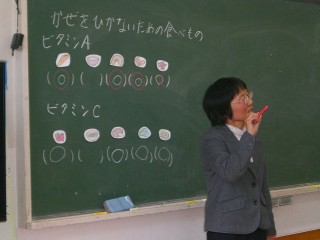 かぜをひかないための食べもの
ビタミンA
(◎) ( ) (◎) (◎) (◎)
ビタミンC
(○) ( ) (○) (○) (○)